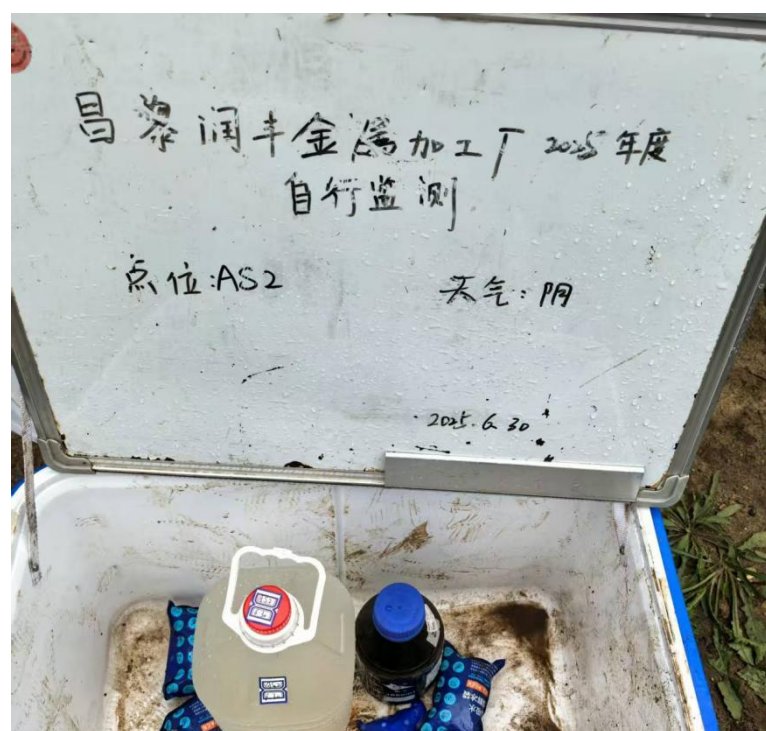 昌黎润丰金属加工厂 2025年度
自行监测
点位:AS2
天气:阴
2025.6.30